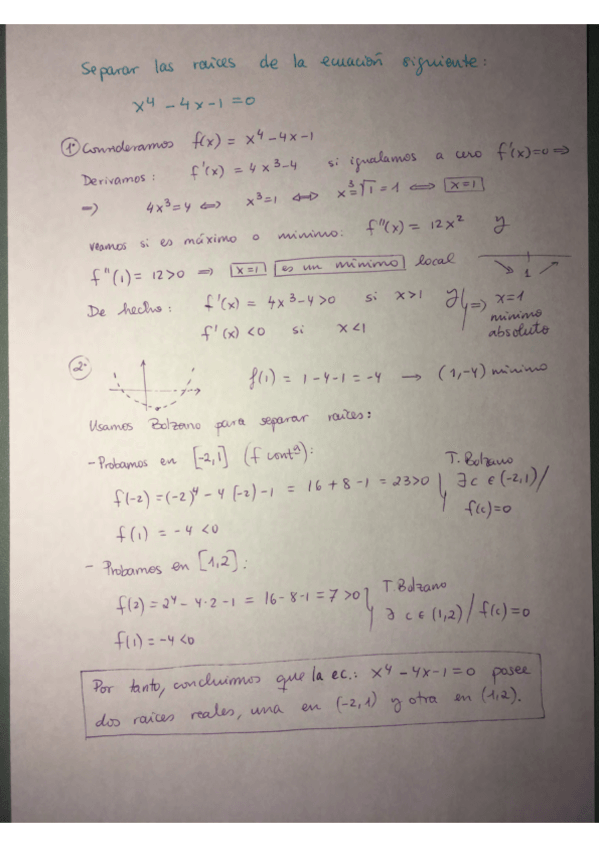 Separar las raíces de la ecuación siguiente:
x⁴ - 4x - 1 = 0
1º Consideramos f(x) = x⁴ - 4x - 1
Derivamos: f'(x) = 4x³ - 4 si igualamos a cero f'(x)=0 ⇒
⇒) 4x³ = 4 ⇔ x³ = 1 ⇔ x = ³√1 = 1 ⇔ x = 1
veamos si es máximo o mínimo: f''(x) = 12x² y
f''(1) = 12 > 0 ⇒ x=1 es un mínimo local
1
De hecho: f'(x) = 4x³ - 4 > 0 si x > 1 y ⇒ x=1
f'(x) < 0 si x < 1
mínimo
absoluto
2º
f(1) = 1 - 4 - 1 = -4 → (1,-4) mínimo
Usamos Bolzano para separar raíces:
- Probamos en [-2,1] (f contª):
f(-2) = (-2)⁴ - 4(-2) - 1 = 16 + 8 - 1 = 23 > 0
f(1) = -4 < 0
T. Bolzano
∃ c ∈ (-2,1) /
f(c) = 0
- Probamos en [1,2]:
f(2) = 2⁴ - 4·2 - 1 = 16 - 8 - 1 = 7 > 0
f(1) = -4 < 0
T. Bolzano
∃ c ∈ (1,2) / f(c) = 0
Por tanto, concluimos que la ec.: x⁴ - 4x - 1 = 0 posee
dos raíces reales, una en (-2,1) y otra en (1,2).